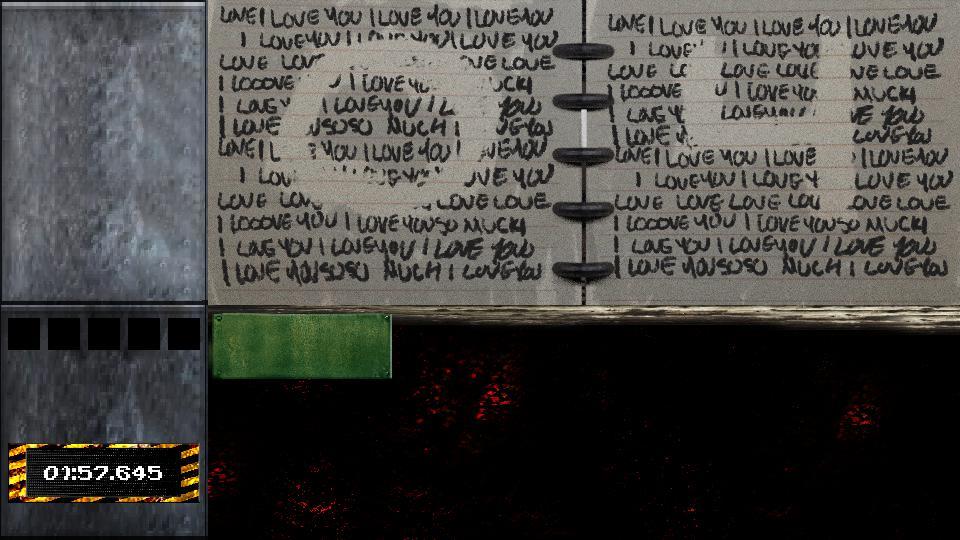 LOVE I LOVE YOU I LOVE YOU I LOVE YOU
I LOVE YOU I LOVE YOU I LOVE YOU
LOVE LOVE LOVE LOVE
I LOOOVE I LOVE YOU MUCH
I LOVE I LOVE YOU I L YOU
I LOVE SOSO MUCH I LOVE YOU
LOVE I L YOU I LOVE YOU I LOVE YOU
I LOVE YOU
LOVE LOVE LOVE LOVE
I LOOOVE YOU I LOVE YOU SO MUCH
I LOVE YOU I LOVE YOU I LOVE YOU
I LOVE YOU SOSO MUCH I LOVE YOU
LOVE I LOVE YOU I LOVE YOU I LOVE YOU
I LOVE I LOVE YO LOVE YOU
LOVE LOVE LOVE LOVE LOVE
I LOOOVE I LOVE YO MUCH
I LOVE Y LOVE YOU
I LOVE LOVE YOU
LOVE I LOVE YOU I LOVE I LOVE YOU
I LOVE YOU I LOVE Y LOVE YOU
LOVE LOVE LOVE LOVE LOVE LOVE
I LOOOVE YOU I LOVE YOU SO MUCH
I LOVE YOU I LOVE YOU I LOVE YOU
I LOVE YOU SOSO MUCH I LOVE YOU
01:57.645